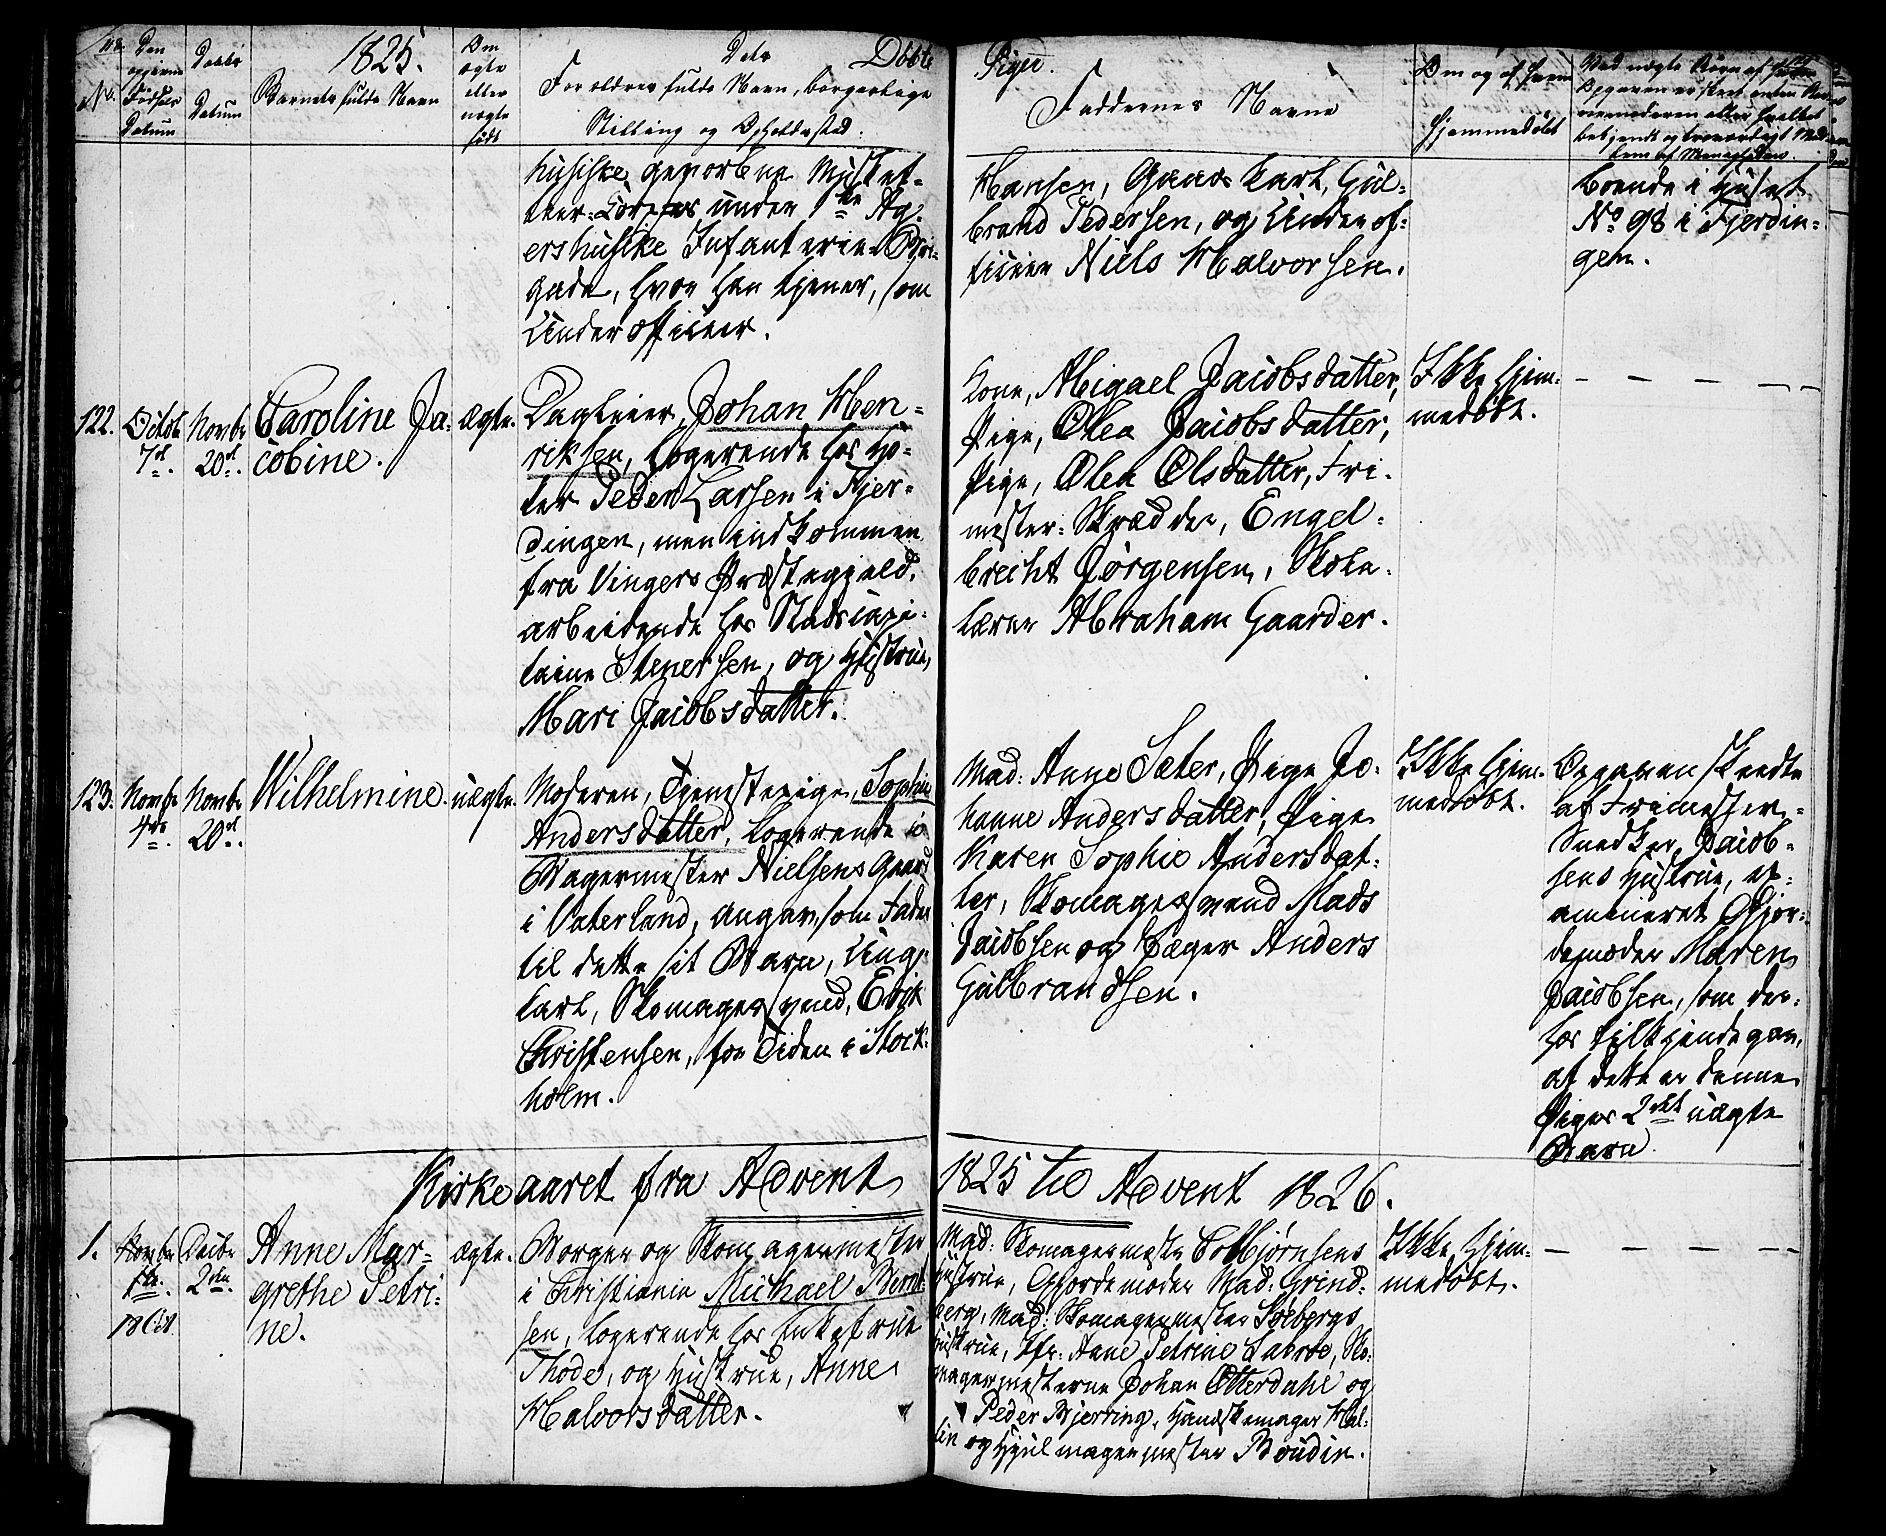 No.
Den opgivne Fødsels Datum
Daabs Datum
1825.
Barnets fulde Navn
Om ægte eller uægte født
Dets
Forældres fulde Navn, borgerlige
Stilling og Opholdssted.
Døbte
Piger.
Faddernes Navne
Om og af hvem
hjemmedøbt
husiske gevorbne Musket-
teer-Corps under 1ste Ag-
ershusiske Infanterie-Bri-
gade, hvor han tjener, som
Underofficeer.
Hansen, Gaards Karl, Gul-
brand Pedersen, og Underof-
ficeer Niels Halvorsen.
boende i Huset
No 98 i Fjerdin-
gen.
122.
Octob
7de.
Novbr
20de.
Caroline Ja-
cobine.
ægte.
Dagleier, Johan Hen-
riksen, logerende hos Hø-
ker Peder Larsen i Fjer-
dingen, men indkommen
fra Vingers Præstegjeld,
arbeidende hos Stadscapi-
taine Stenersen, og Hustrue,
Mari Jacobsdatter.
Kone, Abigael Jacobsdatter,
Pige, Olea Jacobsdatter,
Pige, Olea Olsdatter, Fri-
mester-Skrædder, Engel-
brecht Jørgensen, Skole-
lærer Abraham Gaarder.
Ikke hjem-
medøbt.
123.
Novbr
4de.
Novbr
20de.
Wilhelmine.
uægte.
Moderen, Tjenestepige, Sophie
Andersdatter, logerende i
Bagermester Nielsens Gaard
i Vaterland, angav, som Fader
til dette sit Barn, Ung-
karl, Skomagersvend, Erik
Christensen, for Tiden i Stock-
holm.
Mad: Anne Sæter, Pige Jo-
hanne Andersdatter, Pige
Karen Sophie Andersdat-
ter, Skomagersvend Mads
Jacobsen og Bager Anders
Gulbrandsen.
Ikke hjem-
medøbt.
Opgaven skeedte
af Frimester-
Snedker, Jacob-
sens Hustrue, ex-
amineret Gjor-
demoder Maren
Jacobsen, som der-
hos tilkjendegav,
at dette er denne
Piges 2det uægte
Barn.
Kirkeaaret fra Advent 1825 til Advent 1826.
1.
Novbr
1ste.
18 Oct
Decbr
2den.
Anne Mar-
grethe Petri-
ne.
ægte.
Borger og Skomagermester
i Christiania Michael Bernt-
sen, logerende hos Enkefrue
Thode, og Hustrue, Anne
Halvorsdatter.
Mad: Skomagermester Torbjørnsens
Hustrue, Gjordemoder Mad: Grind-
berg, Mad: Skomagermester Soebergs
Hustrue, Jfr: Anne Petrine Labroe, Sko-
magermesterne Johan Otterdahl og
Peder Bjerring, Handskemager Mal-
lin og Hjulmagermester Boudin.
Ikke hjem-
medøbt.